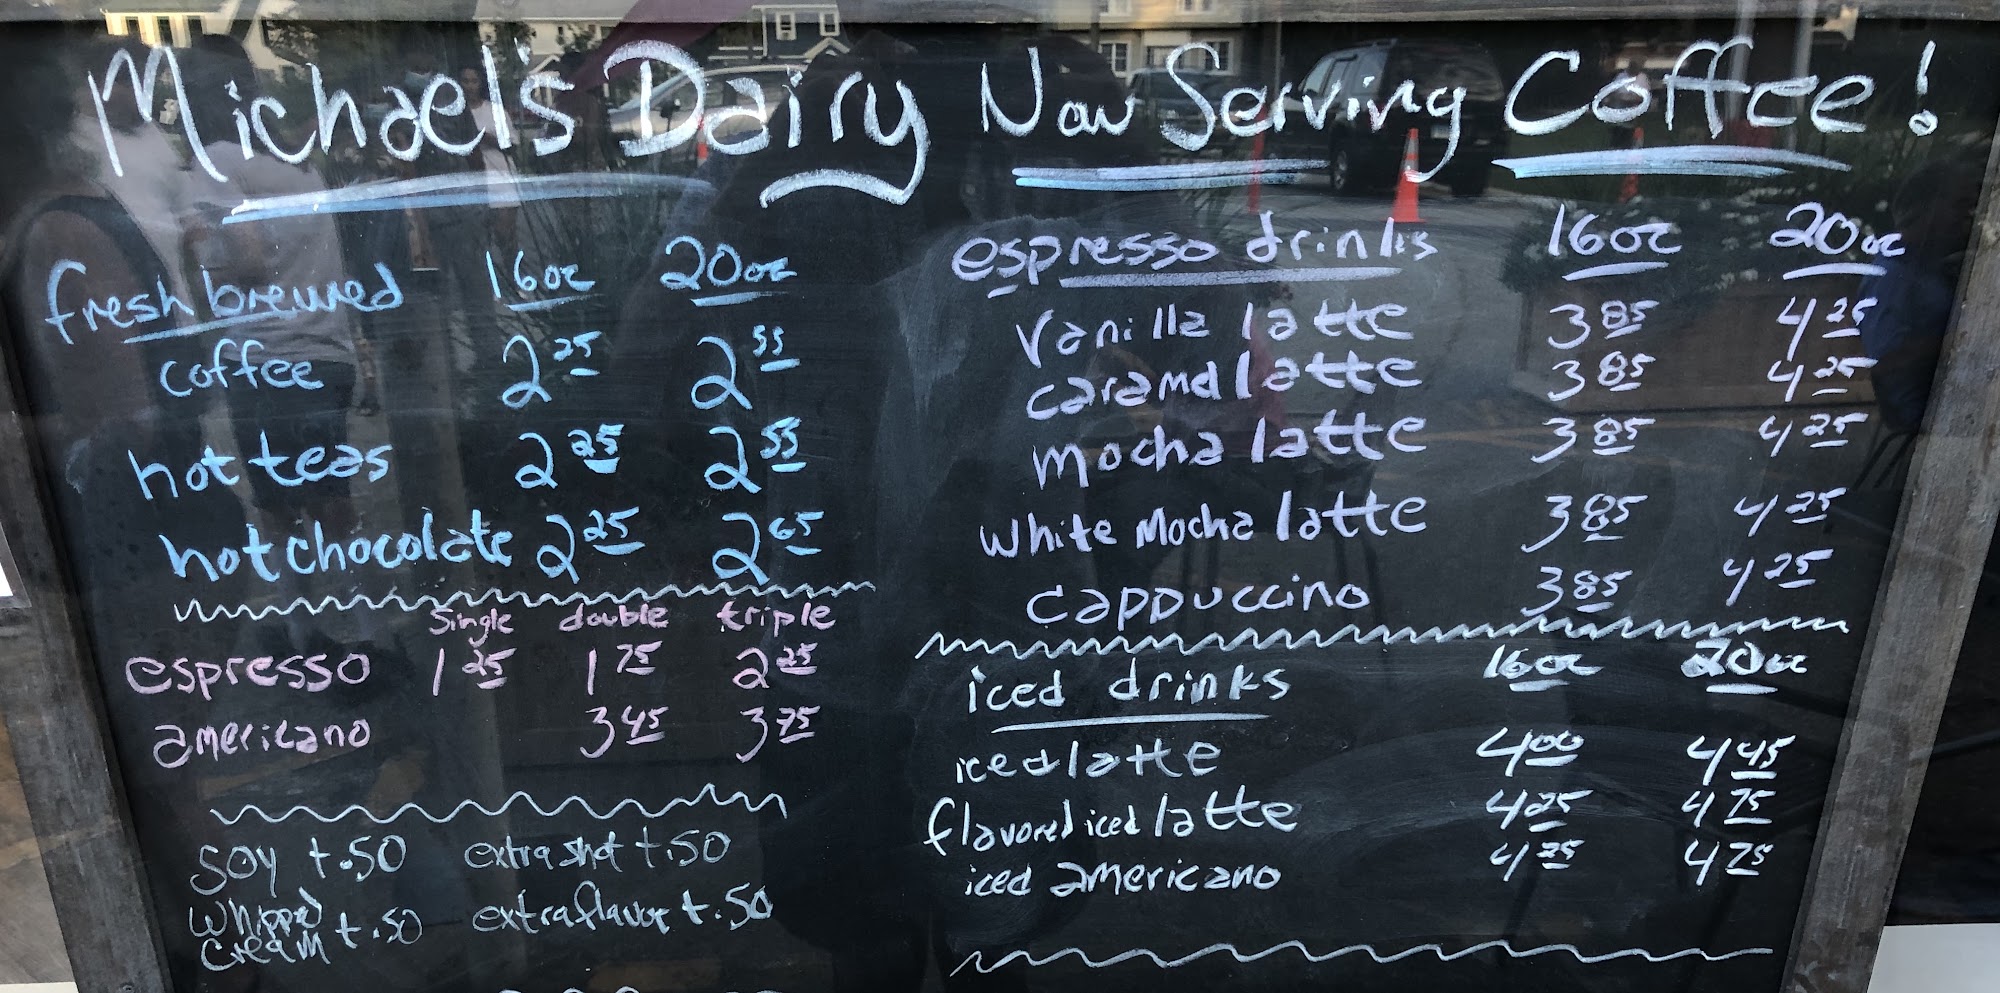 Michael's Dairy Now Serving Coffee!
fresh brewed 16oz 20oz
coffee 2 25 2 55
hot teas 2 25 2 55
hot chocolate 2 25 2 65
single double triple
espresso 1 25 1 75 2 25
americano 3 45 3 75
soy +.50 extra shot +.50
whipped
cream +.50 extra flavor +.50
espresso drinks 16oz 20oz
vanilla latte 3 85 4 25
caramel latte 3 85 4 25
mocha latte 3 85 4 25
white mocha latte 3 85 4 25
cappuccino 3 85 4 25
iced drinks 16oz 20oz
iced latte 4 00 4 45
flavored iced latte 4 25 4 75
iced americano 4 25 4 75